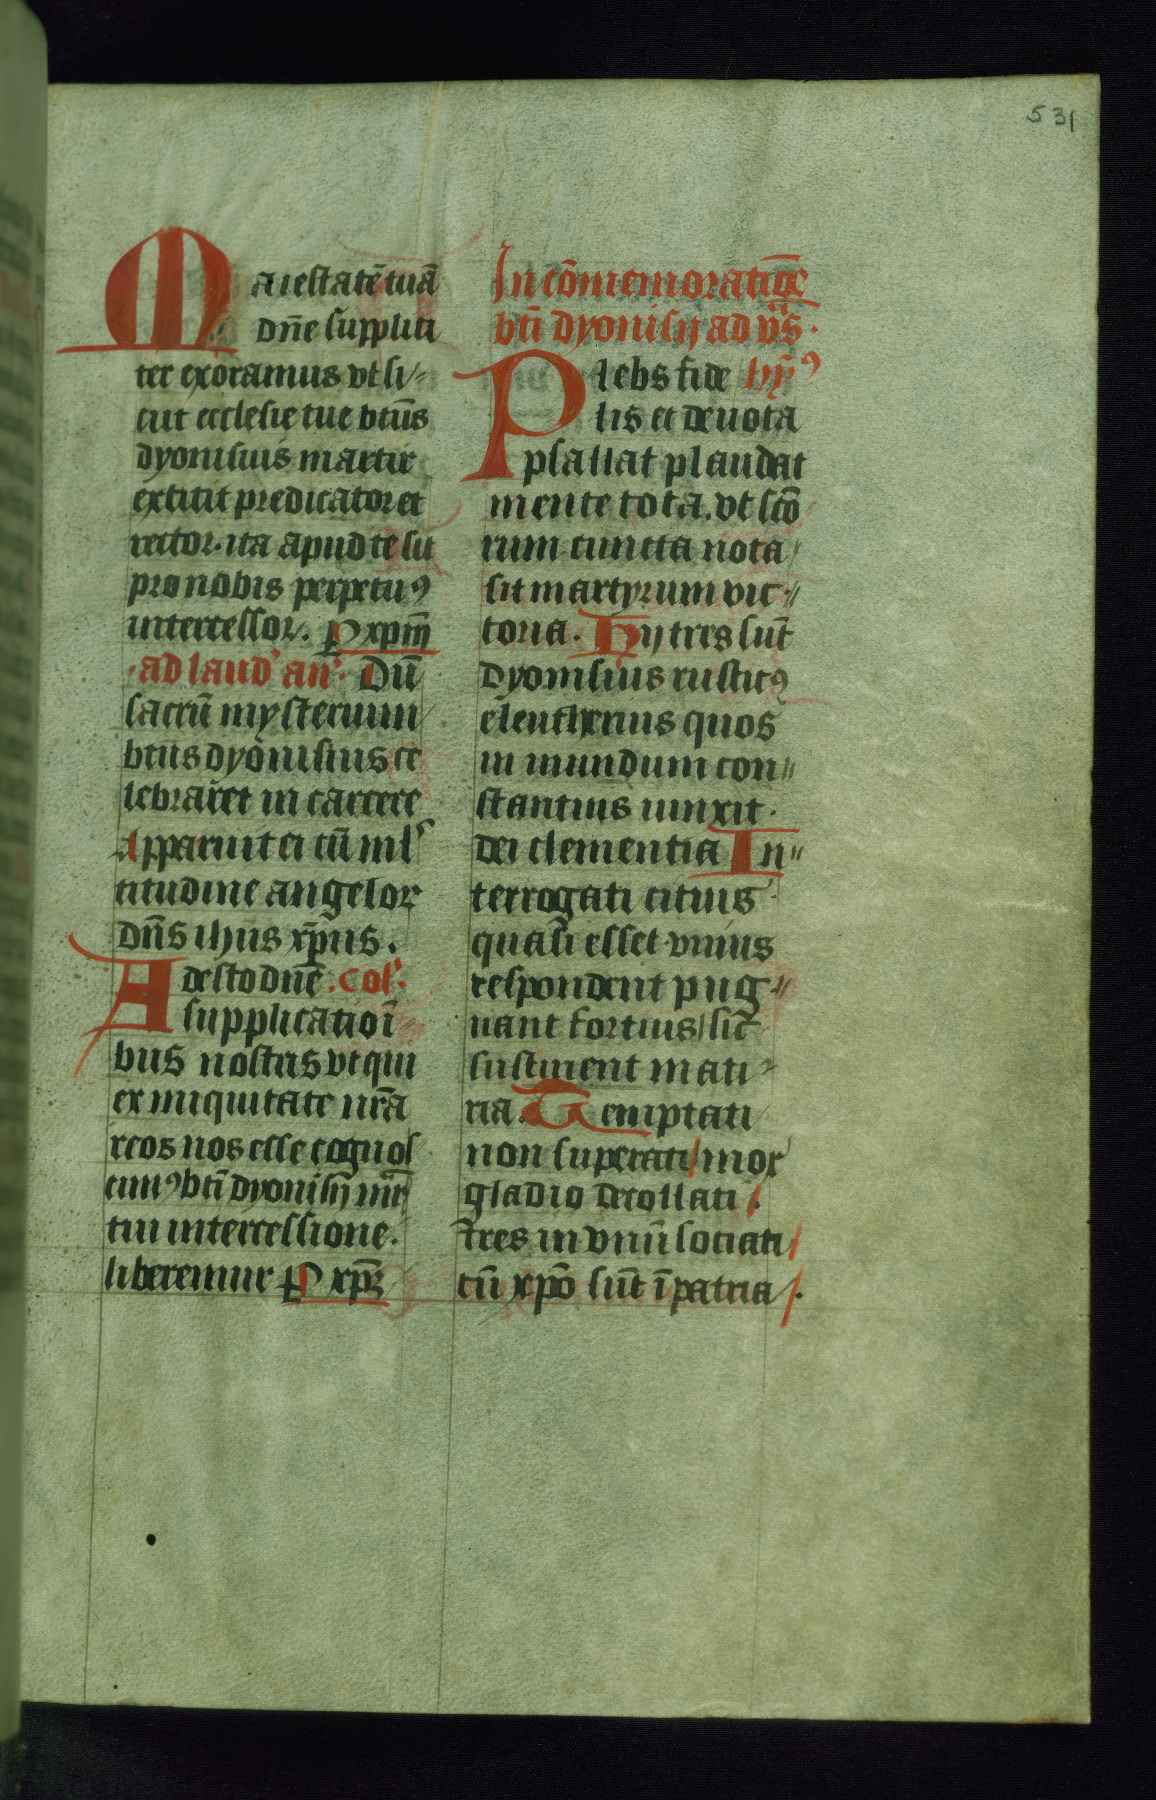 531
Maiestatē tuā
dn̄e suppliti
ter exoramus vt si-
cut ecclesie tue btūs
dyonisius martir
extitit predicator et
rector. ita apud te sit
pro nobis perpetuꝰ
intercessor. P xpm̄
ad laud' an̄. Dū
sacrū mysterium
btūs dyonisius ce
lebraret in carcere
Apparuit ei cū ml'
titudine angelor
dn̄s ihus xp̄us.
Adesto dn̄e. Col'.
supplicatioī
bus nostris vt qui
ex iniquitate nr̄a
reos nos esse cognos
cimꝰ btī dyonisij mr̄
tiri intercessione.
liberemur P xp̄
In cōmemoratiōe
btī dyonisij ad vs̄.
Plebs fide hȳꝰ
lis et deuota
psallat plaudat
mente tota. vt sc̄o
rum cuncta nota
sit martyrum vic-
toria. Hij tres sūt
dyonisius rusticꝰ
eleutherius quos
in mundum con
stantius iunxit.
dei clementia In
terrogati citius
quasi esset vnius
respondent pug
nant fortius / sic̄
sustinent mati
ria. Temptati
non superati / mox
gladio decollati /.
Tres in vnū sociati /
cū xp̄o sūt ī patria /.